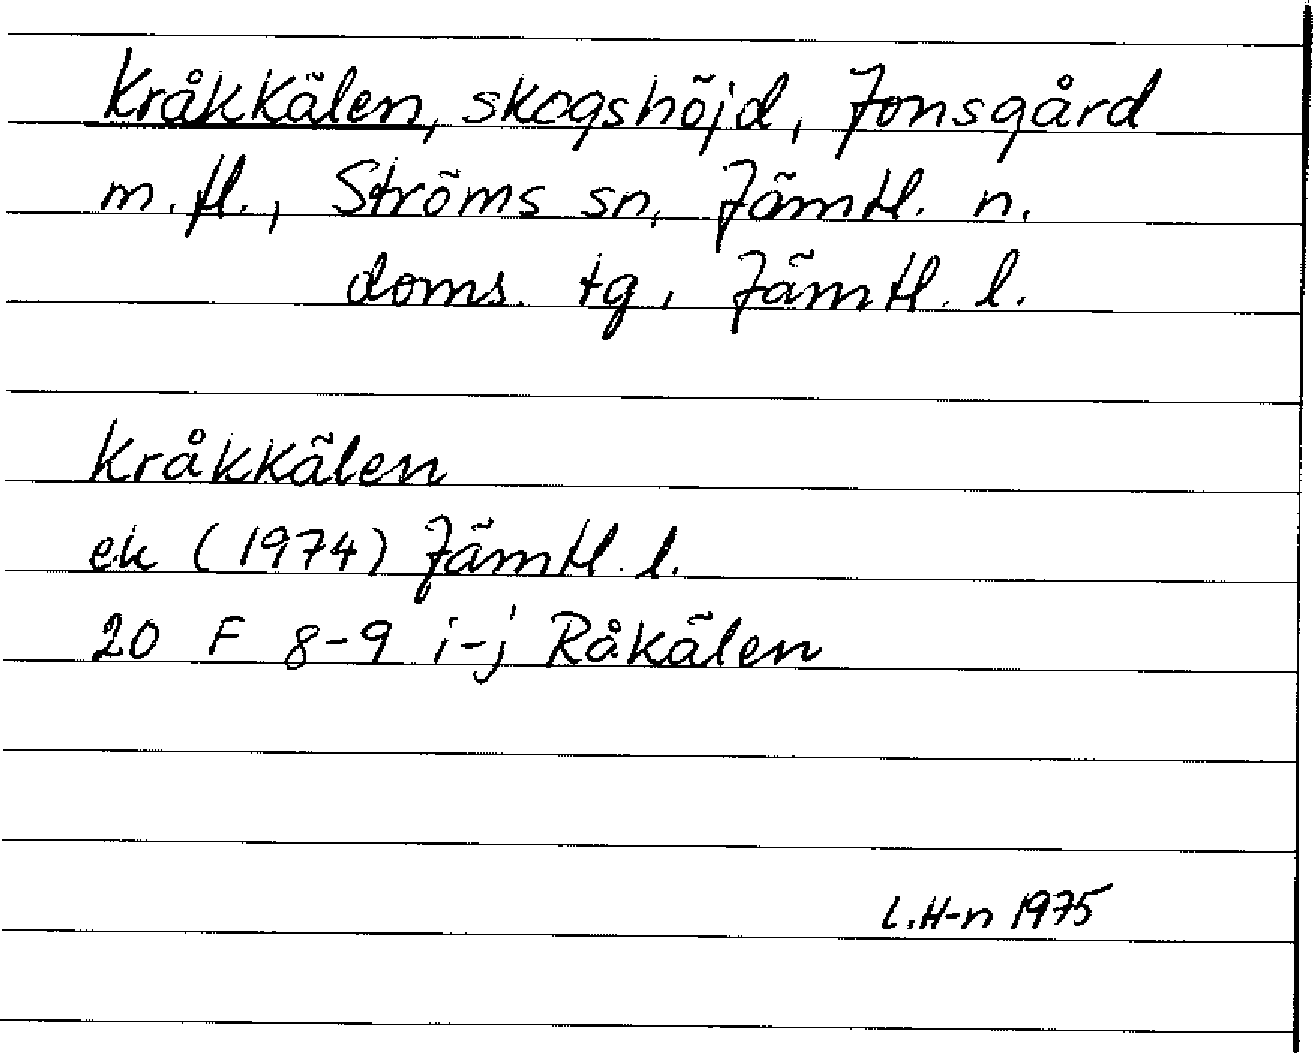 Kråkkälen, skogshöjd, Jonsgård
m.fl., Ströms sn, Jämtl. n.
doms. tg, Jämtl. l.
Kråkkälen
ek (1974) Jämtl. l.
20 F 8-9 i-j Råkälen
L.H-n 1975